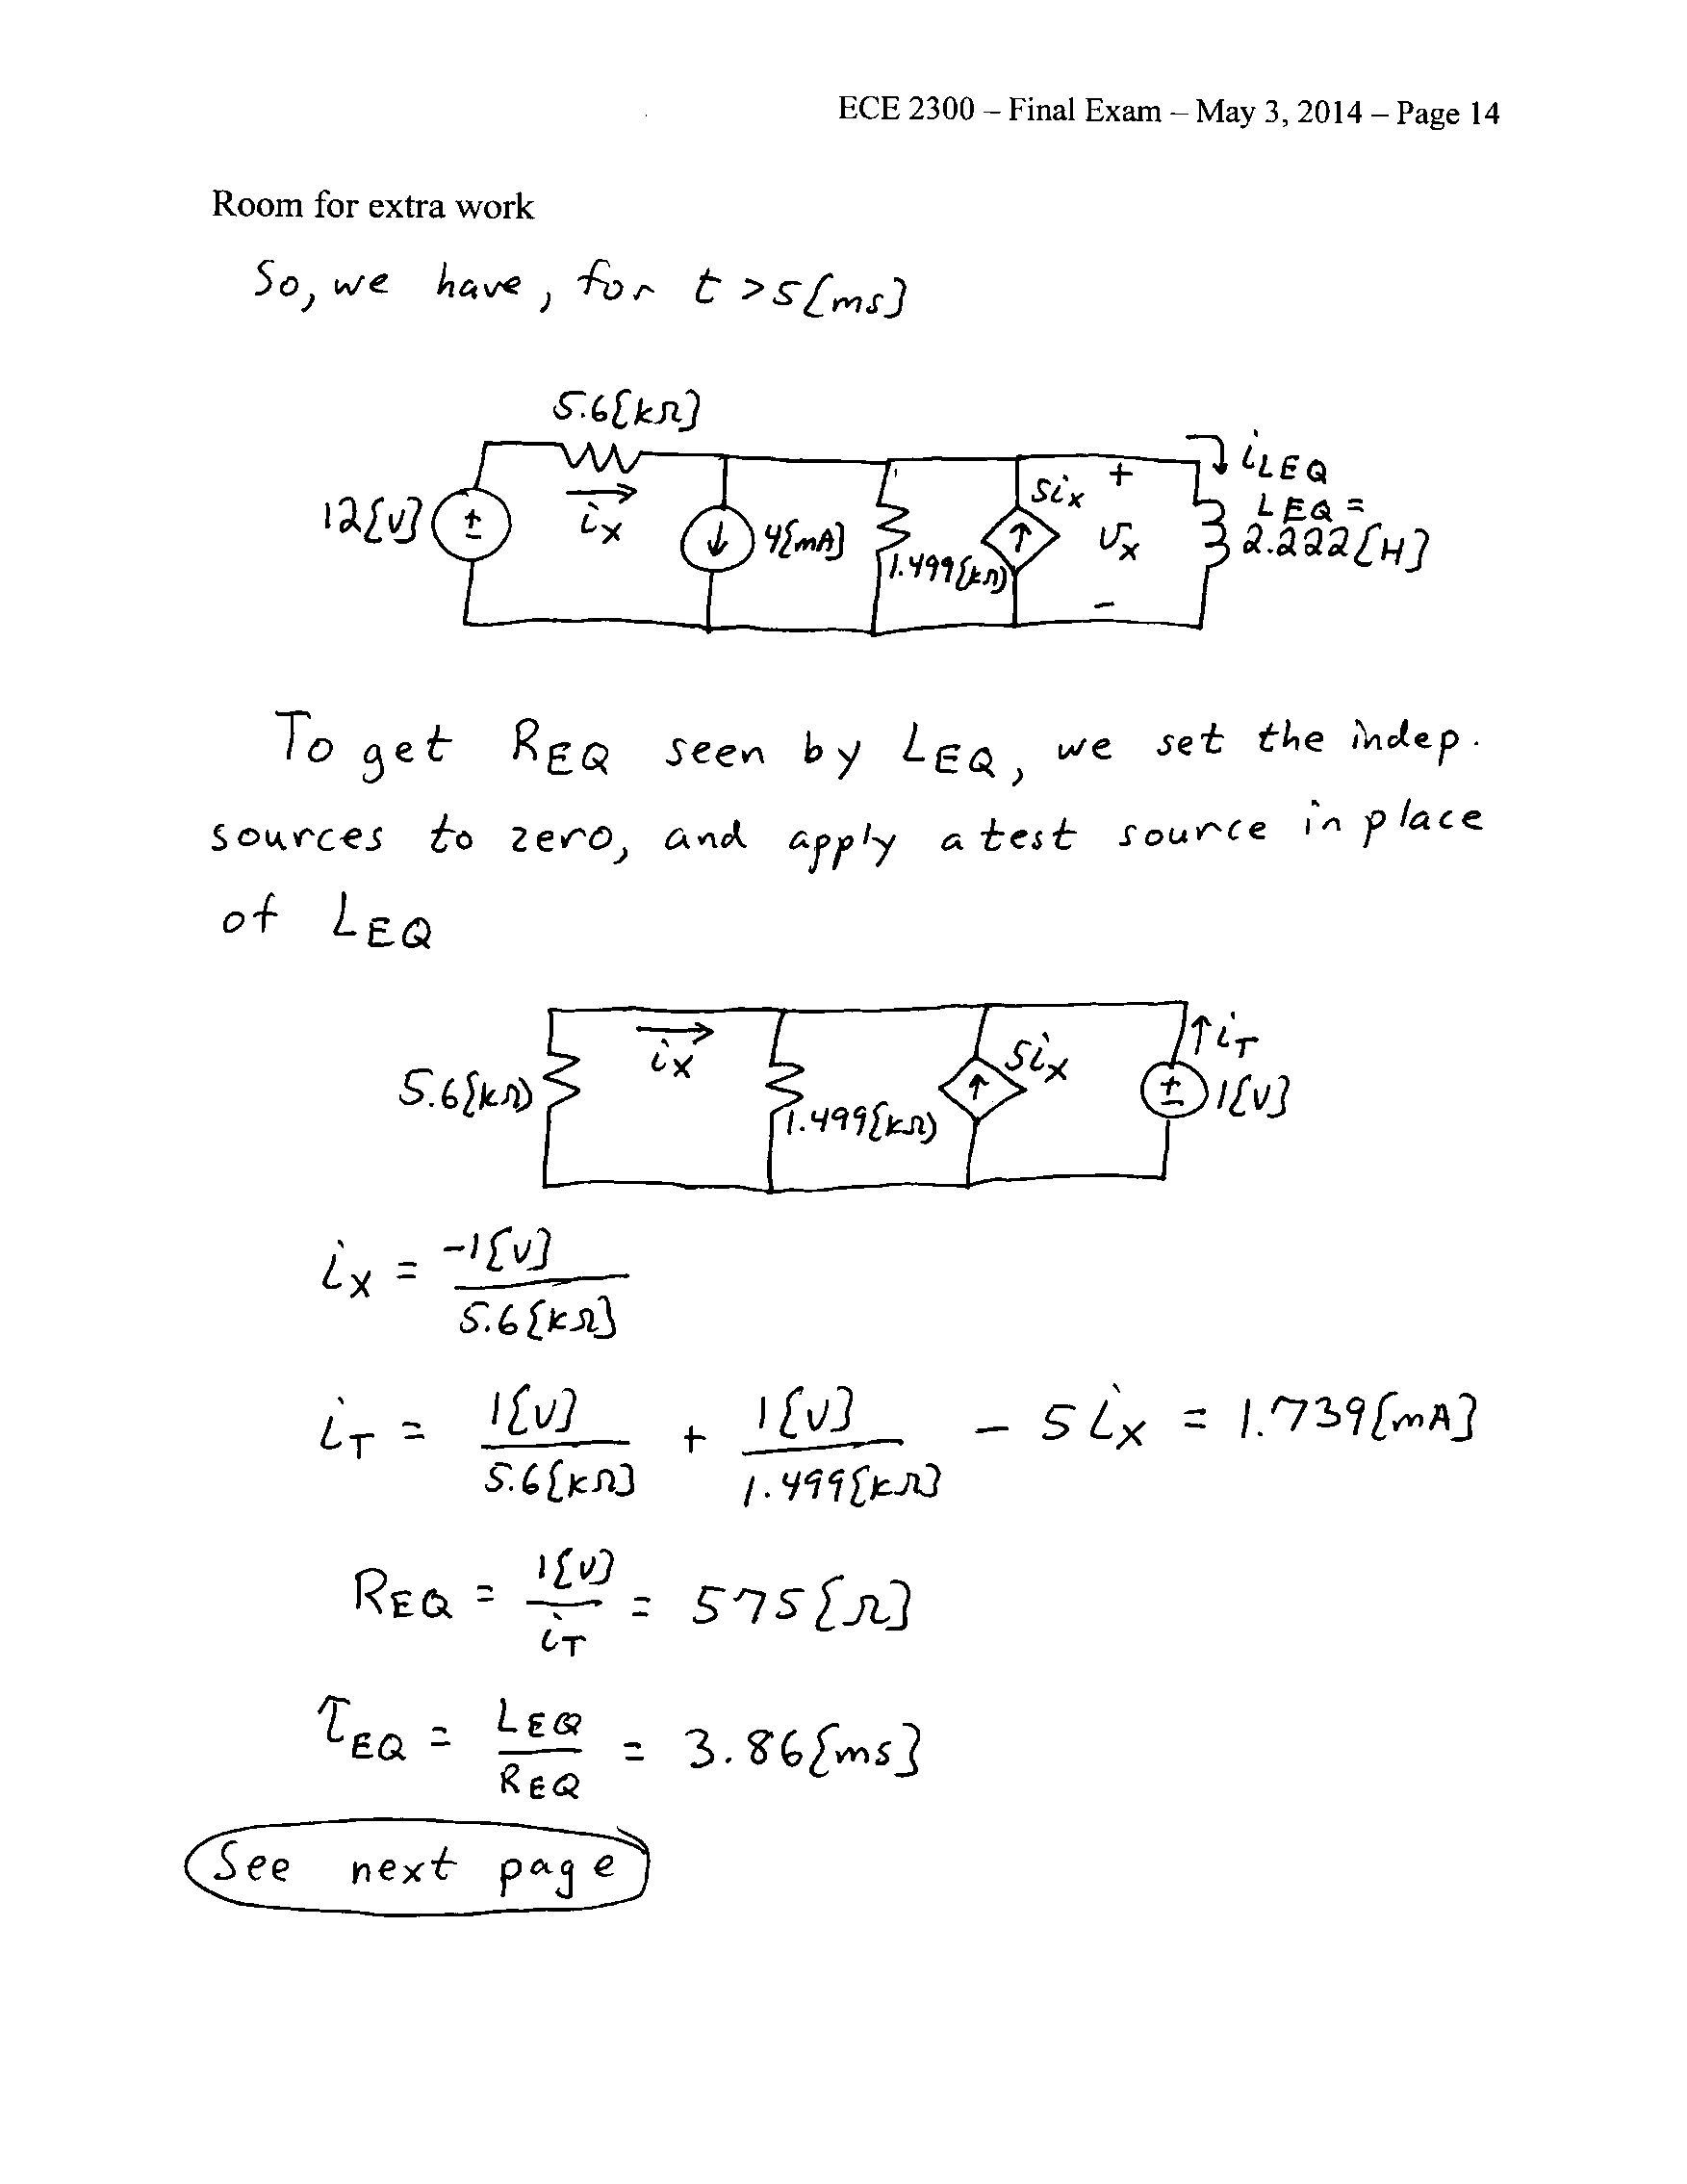 ECE 2300 – Final Exam – May 3, 2014 – Page 14
Room for extra work
So, we have, for t >5[ms]
5.6[kΩ]
iLEQ
12[V] + - ix 4[mA] 1.499[kΩ] 5ix + vx - LEQ = 2.222[H]
To get REQ seen by LEQ, we set the indep.
sources to zero, and apply a test source in place
of LEQ
5.6[kΩ] ix 1.499[kΩ] 5ix iT + - 1[V]
ix = -1[V] / 5.6[kΩ]
iT = 1[V] / 5.6[kΩ] + 1[V] / 1.499[kΩ] - 5ix = 1.739[mA]
REQ = 1[V] / iT = 575[Ω]
τEQ = LEQ / REQ = 3.86[ms]
See next page